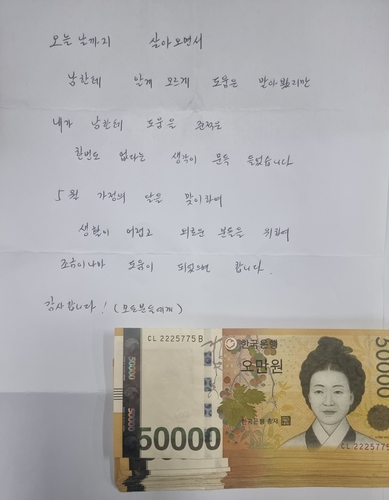 오늘 날까지 살아오면서
남한테 알게 모르게 도움은 받아 봤지만
내가 남한테 도움을 준적은
한번도 없다는 생각이 문득 들었습니다
5월 가정의 달을 맞이하여
생활이 어렵고 외로운 분들을 위하여
조금이나마 도움이 되었으면 합니다.
감사합니다! (모든분들에게)
CL 2225775 B
한국은행
오만원
50000
한국은행 총재
50000
CL 222577
50000